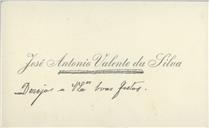 José Antonio Valente da Silva
Deseja a V.Ex.ª boas festas.